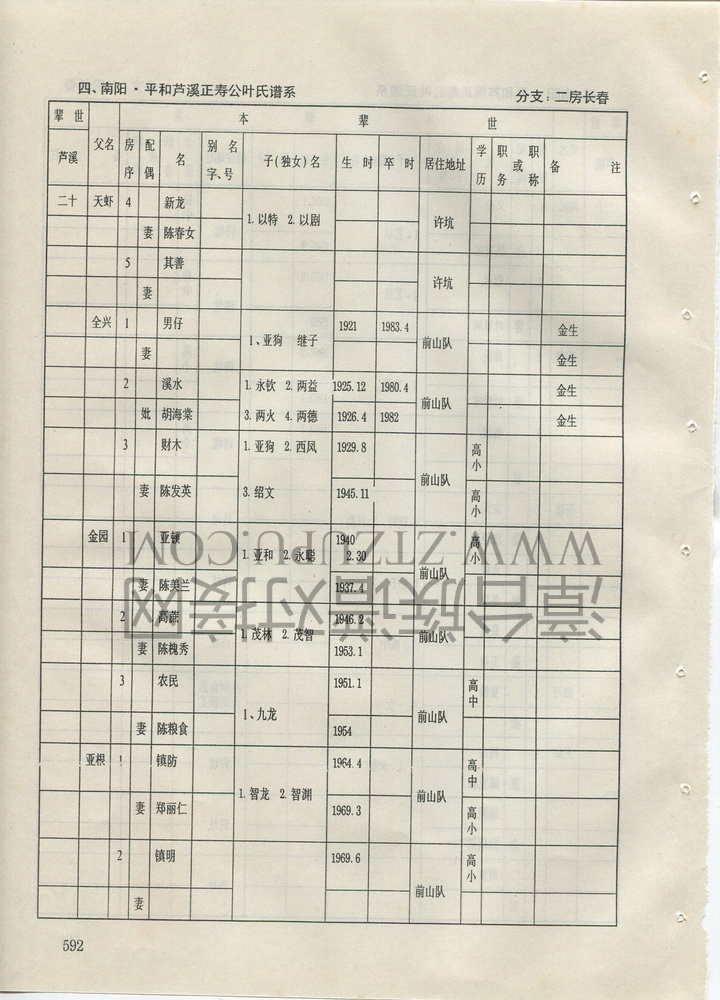 四、南阳·平和芦溪正寿公叶氏谱系 分支：二房长春
辈世 本辈世
芦溪 父名 房序 配偶 名 别名字、号 子(独女)名 生时 卒时 居住地址 学历 职务或职称 备注
二十 天虾 4 新龙 1.以特 2.以剧 许坑
妻 陈春女
5 其善 许坑
妻
全兴 1 男仔 1、亚狗 继子 1921 1983.4 前山队 金生
妻 金生
2 溪水 1.永钦 2.两益 1925.12 1980.4 前山队 金生
妣 胡海棠 3.两火 4.两德 1926.4 1982 金生
3 财木 1.亚狗 2.西凤 1929.8 前山队 高小
妻 陈发英 3.绍文 1945.11 高小
金园 1 亚顿 1.亚和 2.永聪 1940 2.30 前山队 高小
妻 陈美兰 1937.4
2 高 1.茂林 2.茂智 1946.2 前山队
妻 陈槐秀 1953.1
3 农民 1、九龙 1951.1 前山队 高中
妻 陈粮食 1954
亚根 1 镇防 1.智龙 2.智渊 1964.4 前山队 高中
妻 郑丽仁 1969.3 高小
2 镇明 1969.6 前山队 高小
妻
592
WWW.ZTZUPU.COM
漳台族谱对接网